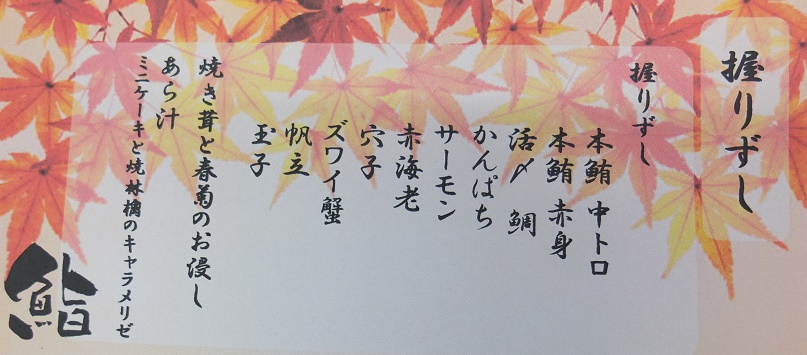 握りずし
握りずし
本鮪 中トロ
本鮪 赤身
活〆 鯛
かんぱち
サーモン
赤海老
穴子
ズワイ蟹
帆立
玉子
焼き茸と春菊のお浸し
あら汁
ミニケーキと焼林檎のキャラメリゼ
鮨